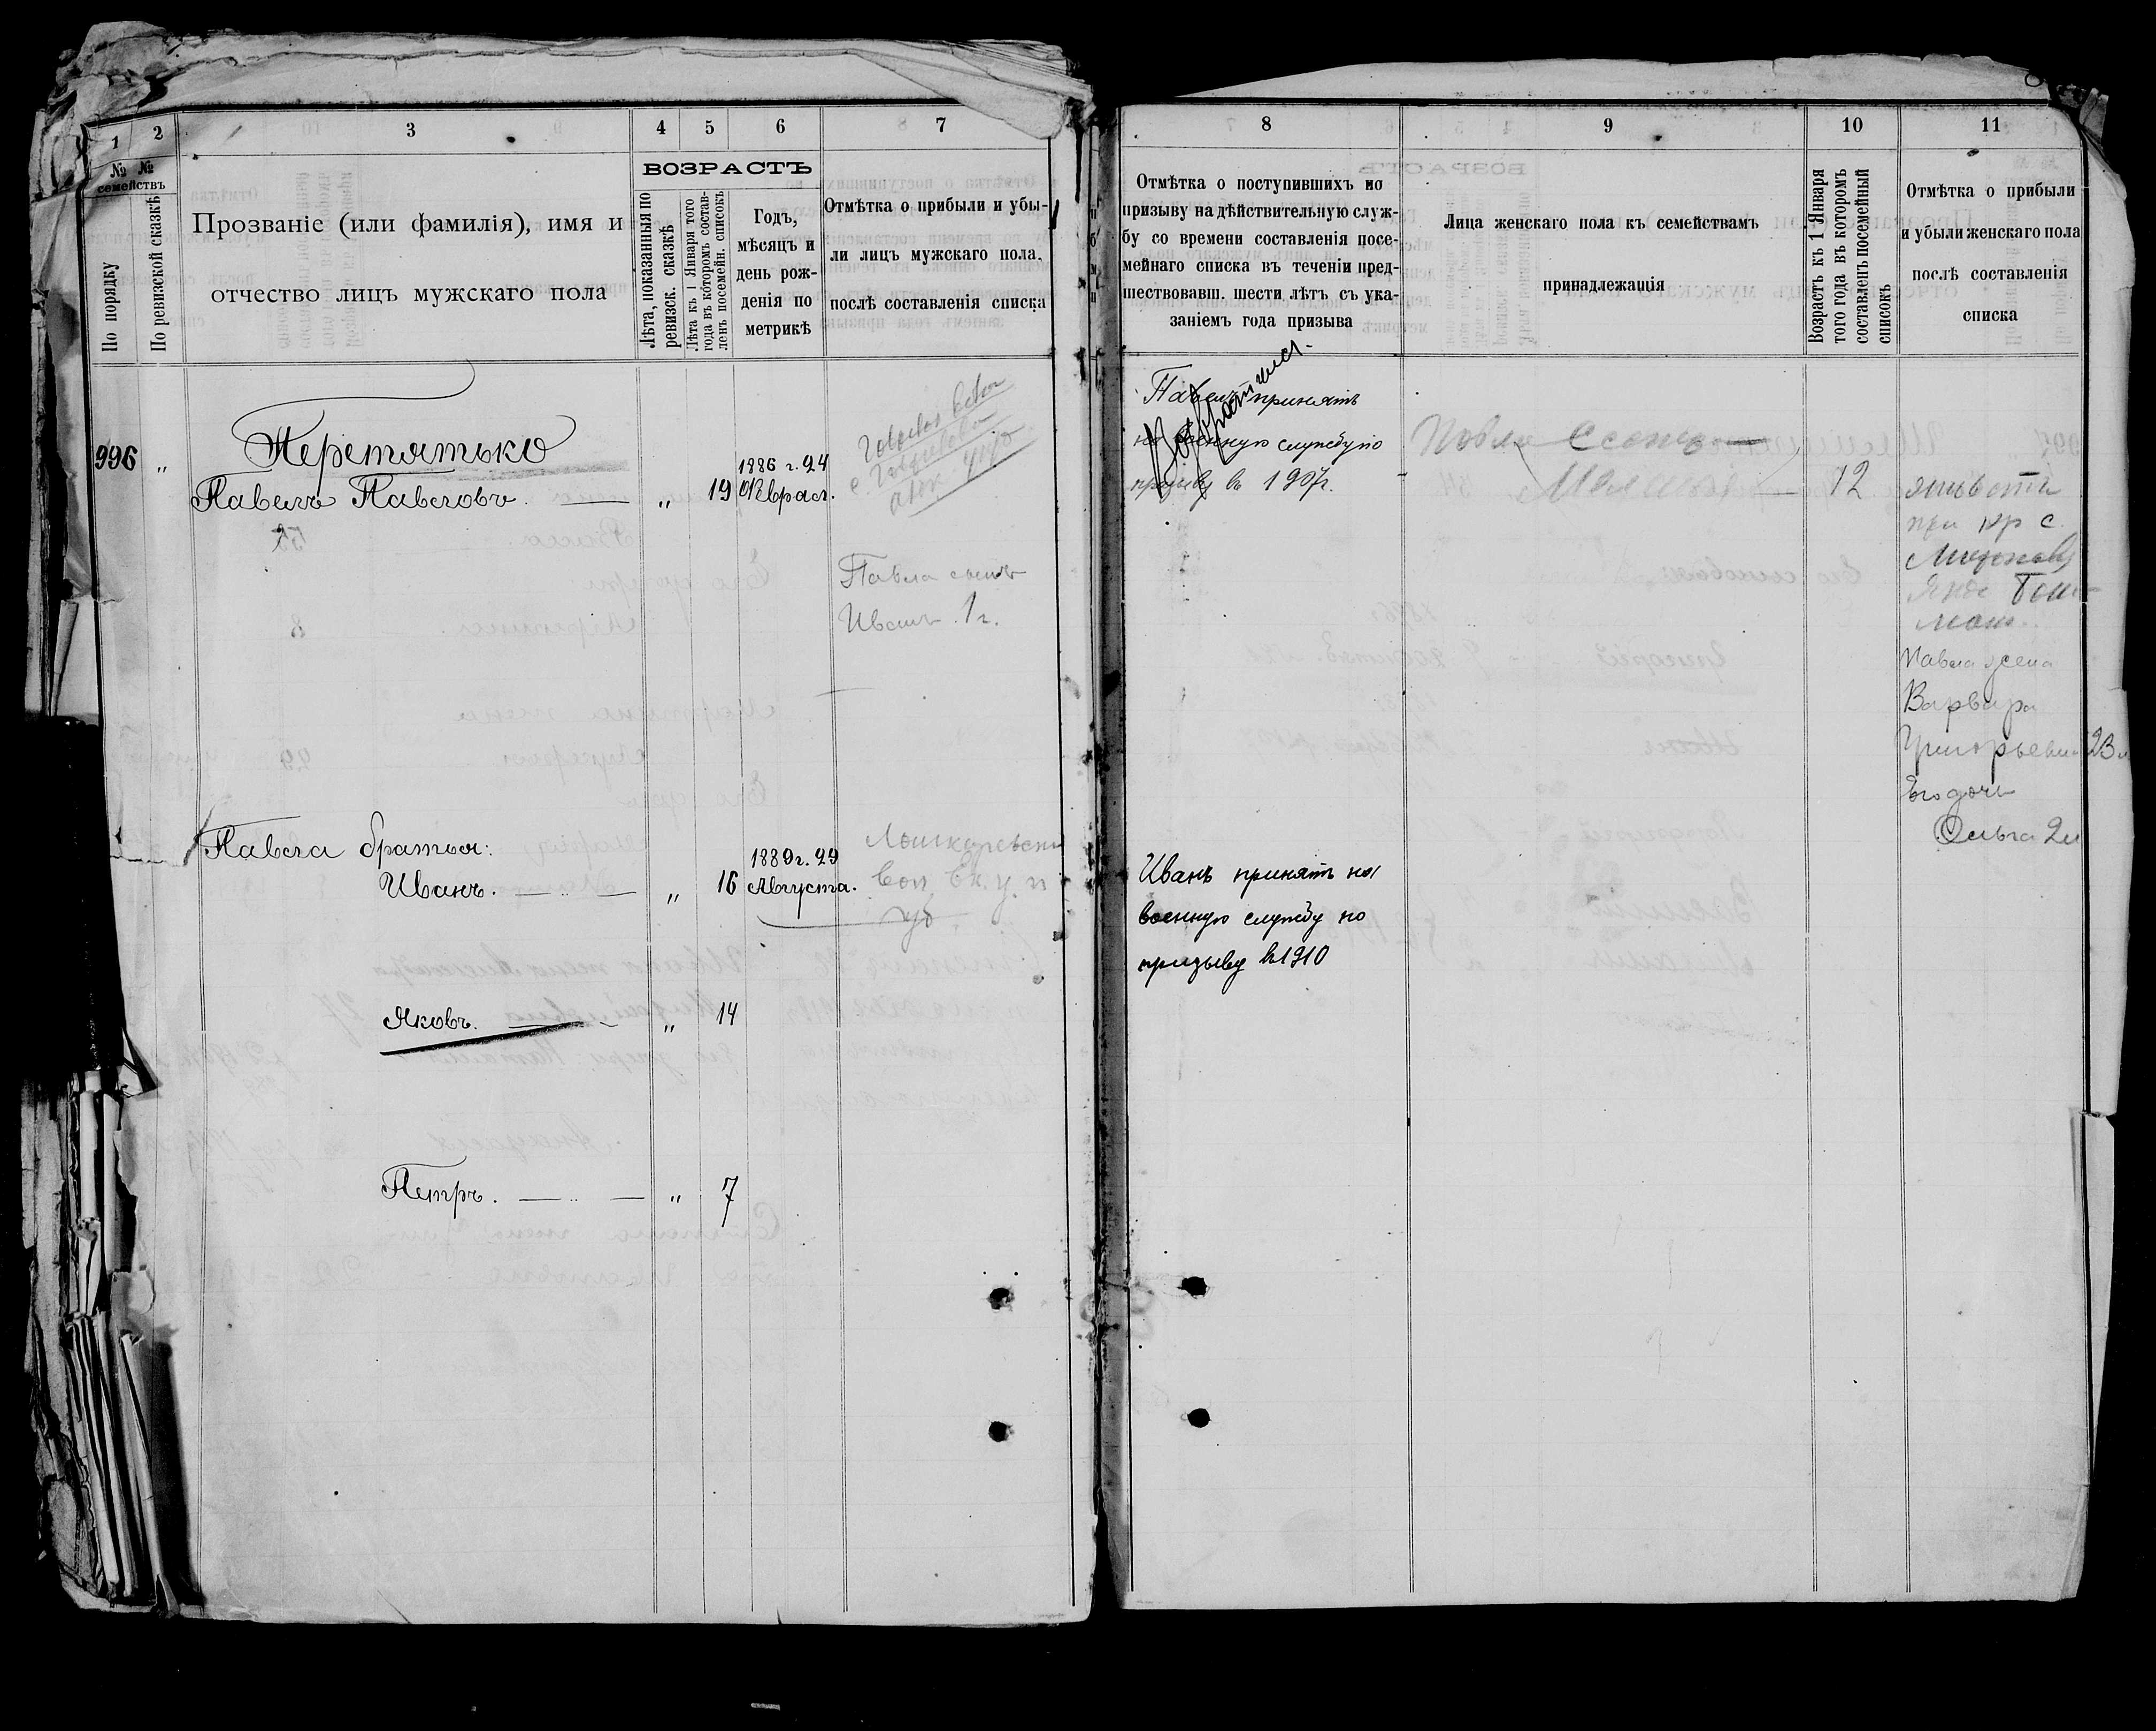 1
2
3
4
5
6
7
№ №
семействъ
По порядку
По ревизской сказкѣ
Прозваніе (или фамилія), имя и
отчество лицъ мужскаго пола
ВОЗРАСТЪ
Лѣта, показанныя по
ревизск. сказкѣ
Лѣта къ 1 Января того
года въ которомъ состав-
ленъ посемейн. списокъ
Годъ,
мѣсяцъ и
день рож-
денія по
метрикѣ
Отмѣтка о прибыли и убы-
ли лицъ мужскаго пола,
послѣ составленія списка
996 „
Перетятько
Павелъ Павловъ. — „ 19
1886 г. 24
Павла сынъ
Иванъ. 1 г.
Павла братья:
Иванъ. — „ 16
1889 г. 29
Августа.
вол.
Яковъ. — „ 14
Петръ. — „ 7
8
9
10
11
Отмѣтка о поступившихъ по
призыву на дѣйствительную служ-
бу со времени составленія посе-
мейнаго списка въ теченіи пред-
шествовавш. шести лѣтъ съ ука-
заніемъ года призыва
Лица женскаго пола къ семействамъ
принадлежащія
Возрастъ къ 1 Января
того года въ которомъ
составленъ посемейный
списокъ
Отмѣтка о прибыли
и убыли женскаго пола
послѣ составленія
списка
Павелъ принятъ
на военную службу по
призыву въ 1907г.
Павла
12
Павла жена
Варвара
Григорьевна 23 л
Его дочь
Ольга 2 л
Иванъ принятъ на
военную службу по
призыву въ 1910